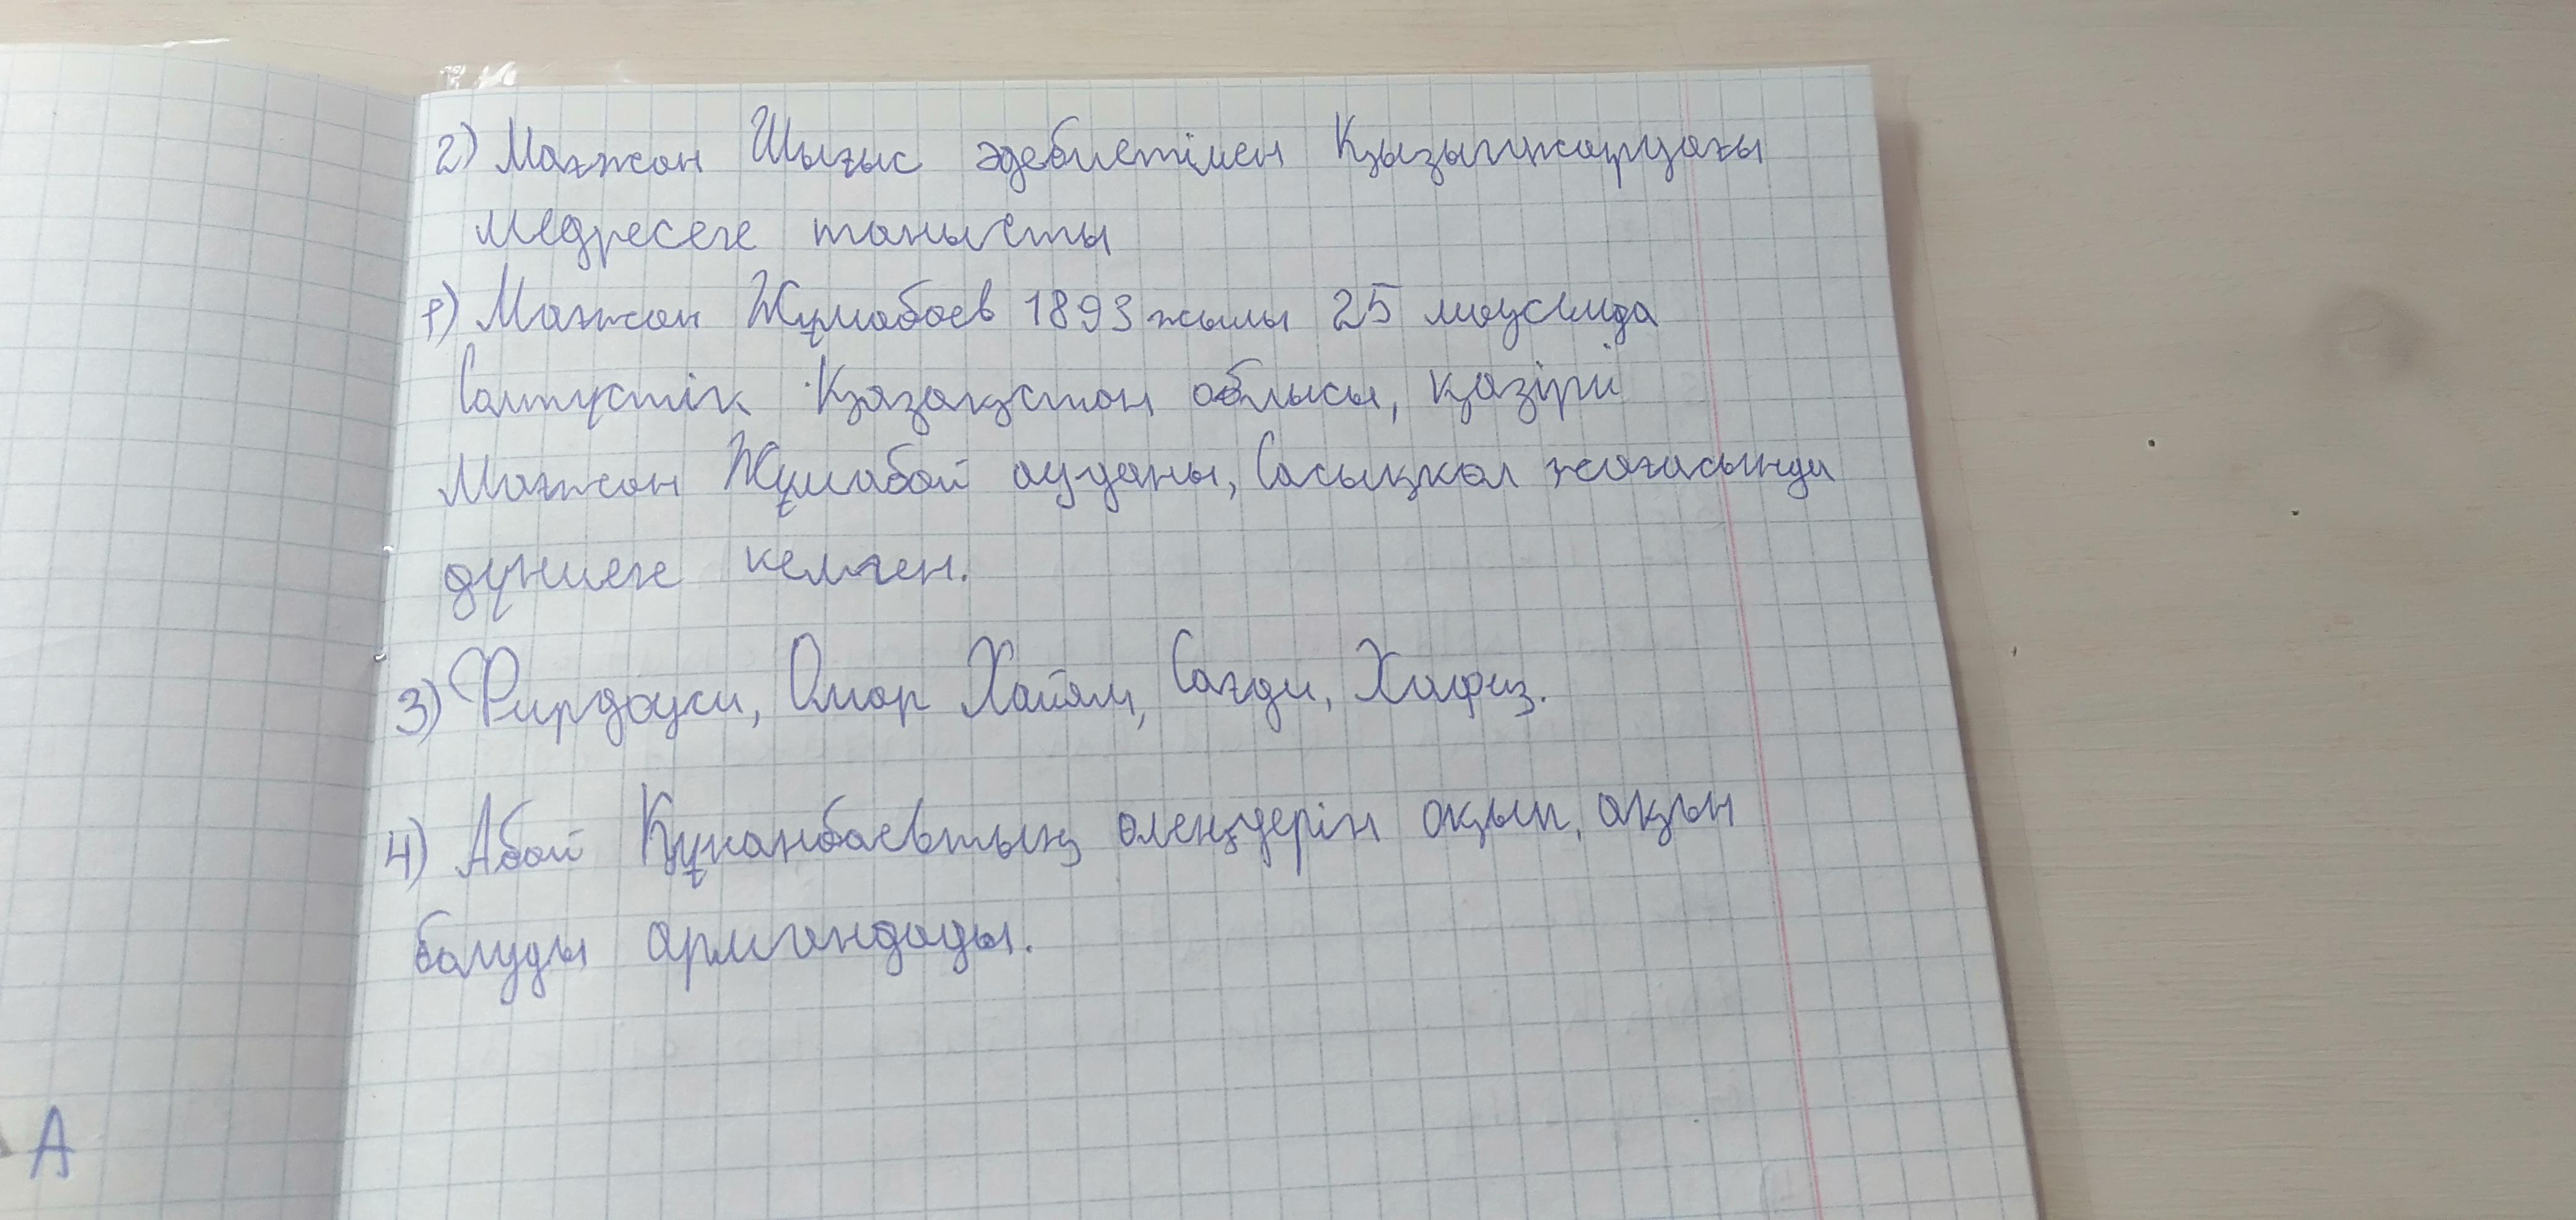 2) Мағжан Шығыс әдебиетімен Қызылжардағы
медресеге танысты
1) Мағжан Жұмабаев 1893 жылы 25 маусымда
Солтүстік Қазақстан облысы, қазіргі
Мағжан Жұмабай ауданы, Сасықкөл жағасында
дүниеге келген.
3) Фирдауси, Омар Хайям, Сағди, Хафиз.
4) Абай Құнанбаевтың өлеңдерін оқып, ақын
болуды армандады.
А